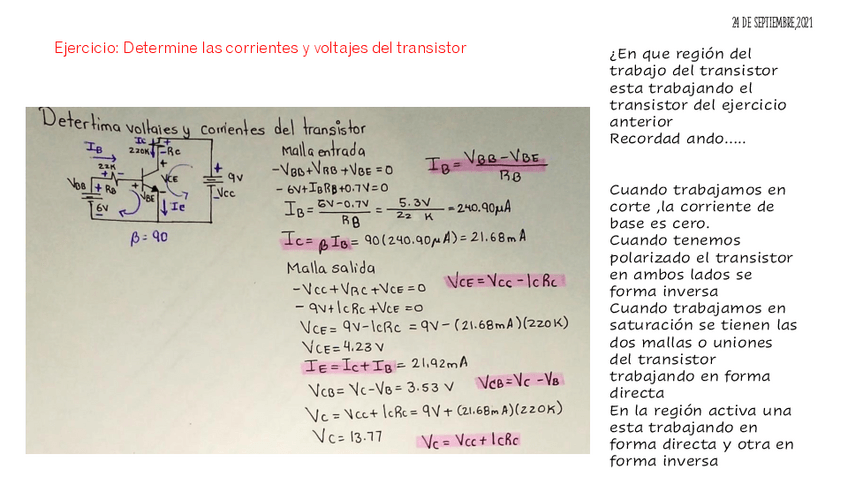 24 DE SEPTIEMBRE,2021
Ejercicio: Determine las corrientes y voltajes del transistor
Detertima voltajes y corrientes del transistor
IB
22K
+ -
VBB
+ RB
6V
IC
220K
- RC
+
VCE
+ VBE
IC
+
9V
- VCC
β = 90
Malla entrada
-VBB+VRB+VBE=0
- 6V+IBRB+0.7V=0
IB = 6V-0.7V / RB = 5.3V / 22 K = 240.90μA
IB = VBB - VBE / RB
IC = β IB = 90(240.90μA) = 21.68mA
Malla salida
-VCC+VRC+VCE=0
VCE = VCC - ICRC
- 9V+ICRC+VCE=0
VCE = 9V-ICRC = 9V-(21.68mA)(220K)
VCE=4.23V
IE=IC+IB = 21.92mA
VCB= VC-VB= 3.53 V
VCB=VC -VB
VC = VCC+ICRC=9V+(21.68mA)(220K)
VC= 13.77
VC = VCC+ICRC
¿En que región del
trabajo del transistor
esta trabajando el
transistor del ejercicio
anterior
Recordad ando.....
Cuando trabajamos en
corte ,la corriente de
base es cero.
Cuando tenemos
polarizado el transistor
en ambos lados se
forma inversa
Cuando trabajamos en
saturación se tienen las
dos mallas o uniones
del transistor
trabajando en forma
directa
En la región activa una
esta trabajando en
forma directa y otra en
forma inversa